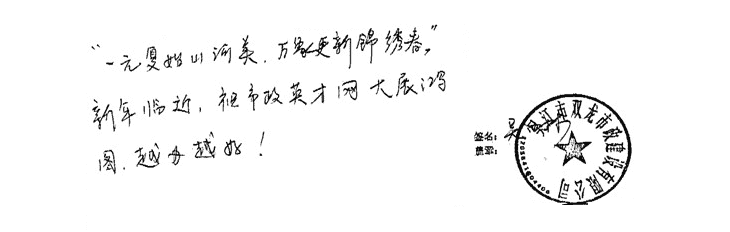 “一元复始山河美，万象更新锦绣春。”
新年临近，祝市政英才网大展鸿
图，越办越好！
签名：吴
吴江市双龙市政建设有限公司